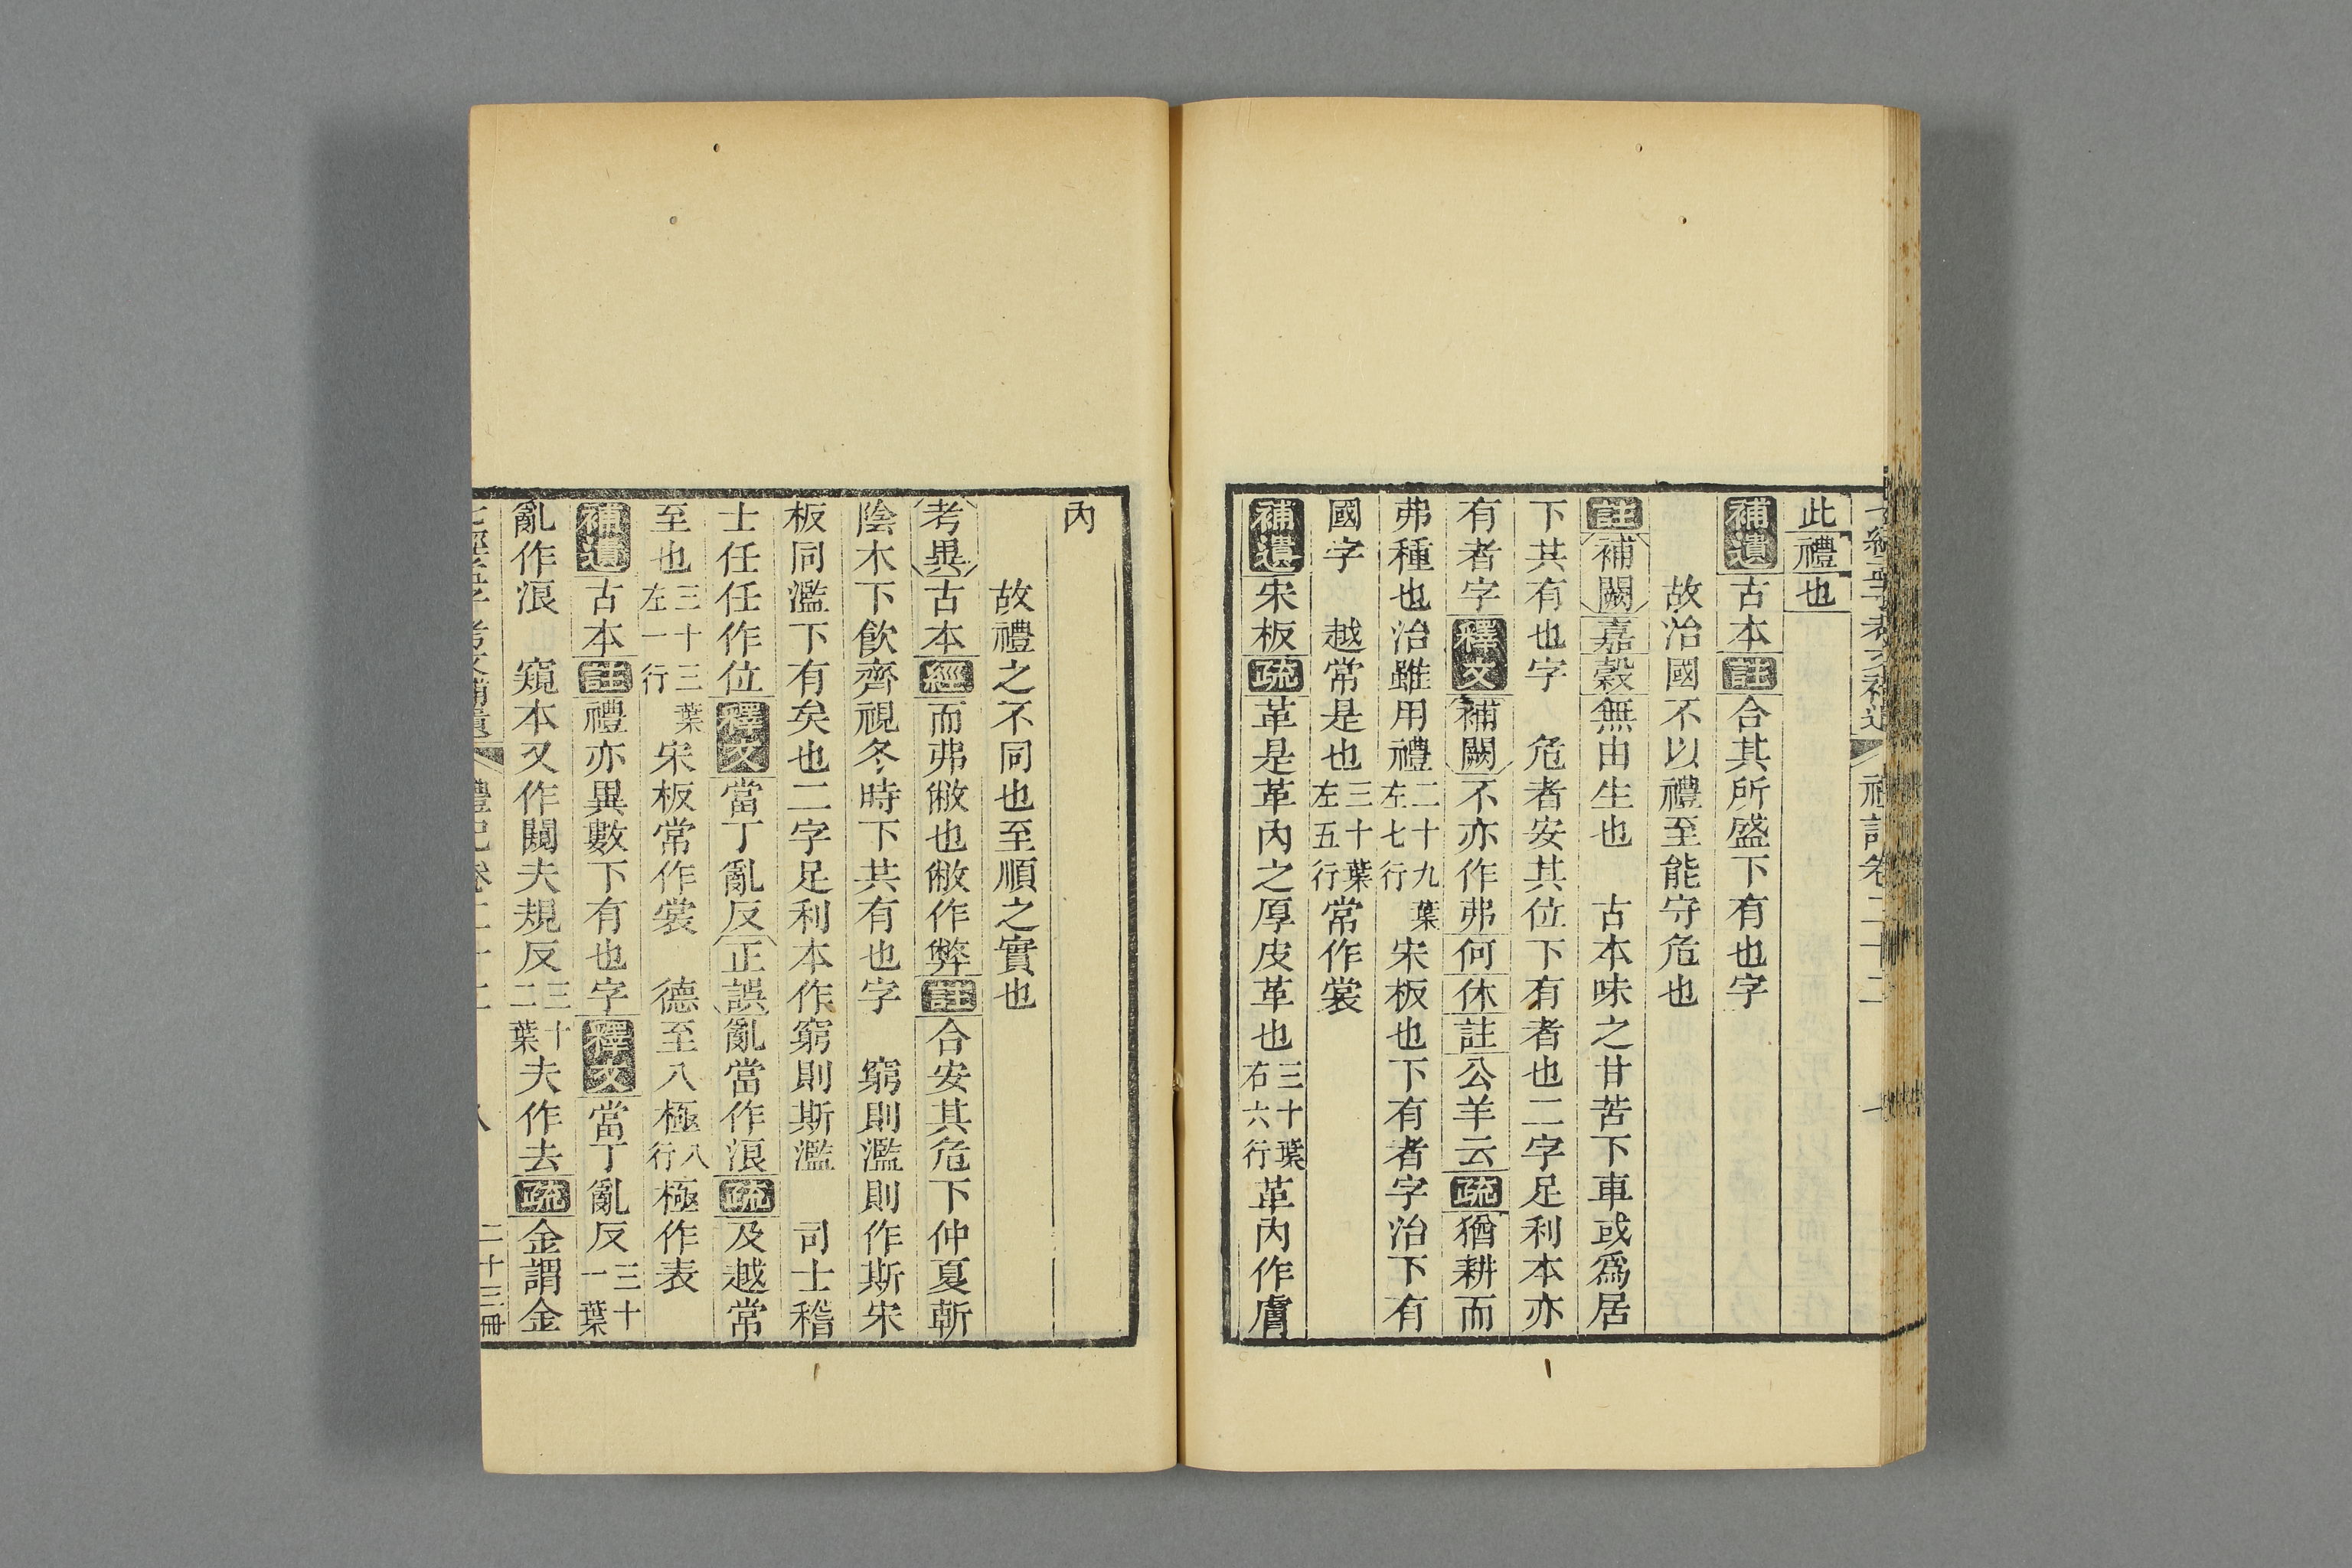 七經孟子考文補遺 禮記卷二十二 七
此禮也
補遺古本註合其所盛下有也字
故治國不以禮至能守危也
註補闕嘉穀無由生也 古本味之甘苦下車或爲居
下共有也字 危者安其位下有者也二字足利本亦
有者字釋文補闕不亦作弗何休註公羊云疏猶耕而
弗種也治雖用禮二十九葉左七行宋板也下有者字治下有
國字 越常是也三十葉左五行常作裳
補遺宋板疏革是革內之厚皮革也三十葉右六行革內作膚
內
故禮之不同也至順之實也
考異古本經而弗敝也敝作弊註合安其危下仲夏斬
陰木下飮齊視冬時下共有也字 窮則濫則作斯宋
板同濫下有矣也二字足利本作窮則斯濫 司士稽
士任任作位釋文當丁亂反正誤亂當作浪疏及越常
至也三十三葉左一行宋板常作裳 德至八極八行極作表
補遺古本註禮亦異數下有也字釋文當丁亂反三十一葉
亂作浪 窺本又作闚夫規反三十二葉夫作去疏金謂金
七經孟子考文補遺 禮記卷二十二 八 二十三冊